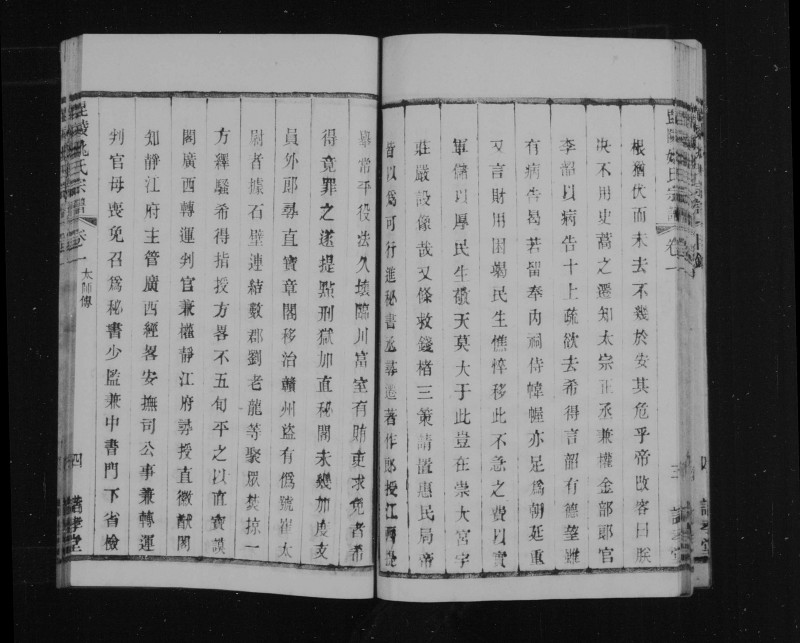 根猶伏而未去不幾於安其危乎帝改容曰朕
决不用史蒿之遷知太宗正丞兼權金部郎官
李韶以病告十上疏欲去希得言韶有德望雖
有病告曷若留奉內祠侍幃幄亦足爲朝廷重
又言財用困竭民生憔悴移此不急之費以實
軍儲以厚民生敬天莫大于此豈在崇大宮宇
莊嚴設像哉又條救錢楮三策請置惠民局帝
皆以爲可行進秘書丞尋遷著作郎授江西提
舉常平役法久壞臨川富室有賄吏求免者希
得竟罪之遂提點刑獄加直秘閣未幾加度支
員外郎尋直寶章閣移治贛州盜有僞號崔太
尉者據石壁連結數郡劉老龍等聚眾焚掠一
方繹騷希得指授方畧不五旬平之以直寶謨
閣廣西轉運判官兼權靜江府尋授直徽猷閣
知靜江府主管廣西經畧安撫司公事兼轉運
判官母喪免召爲秘書少監兼中書門下省檢
毘陵姚氏宗譜 卷一 太師傳 四 諧孝堂